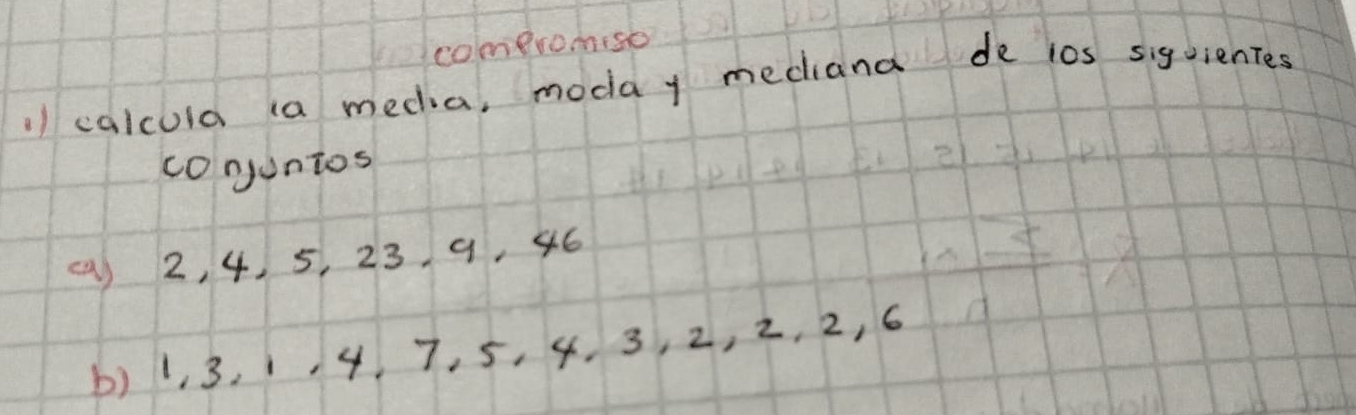 compromiso
1) calcula la media, moda y mediana de los siguientes
conjuntos
a) 2, 4, 5, 23, 9, 46
b) 1, 3, 1, 4, 7, 5, 4, 3, 2, 2, 2, 6